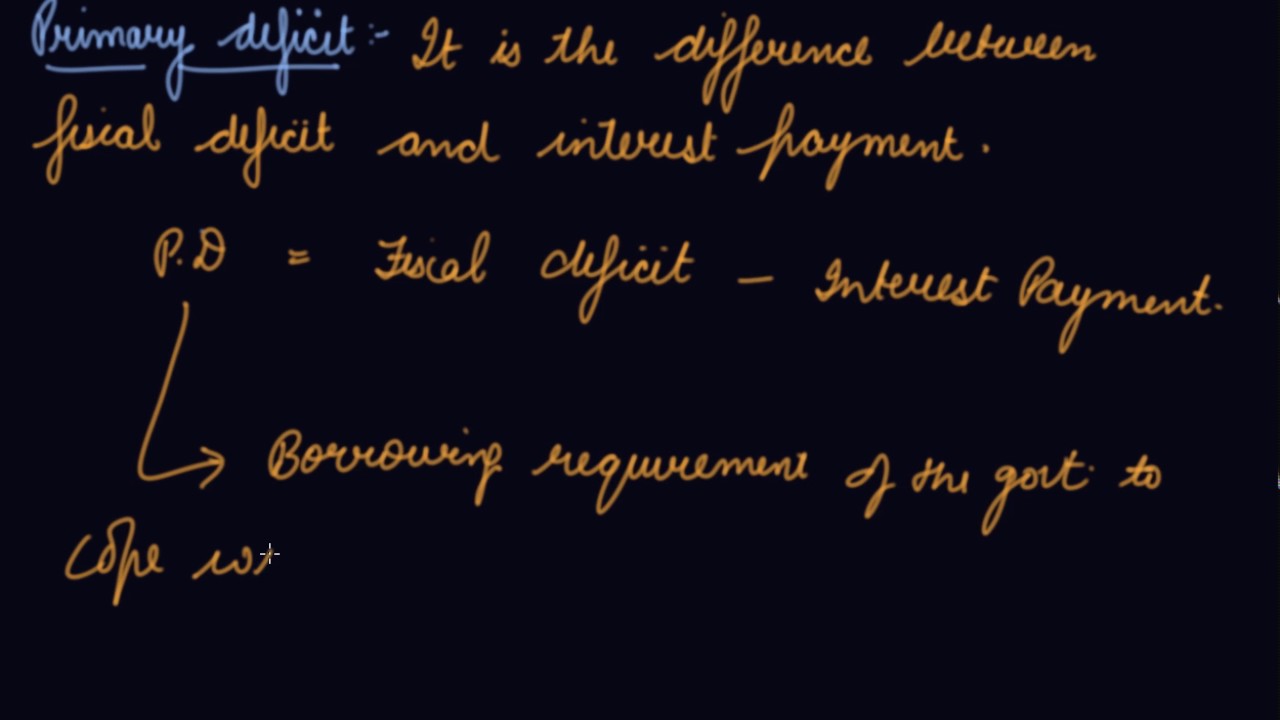 Primary deficit :- It is the difference between
fiscal deficit and interest payment.
P.D = Fiscal deficit – Interest Payment.
Borrowing requirement of the govt. to
cope